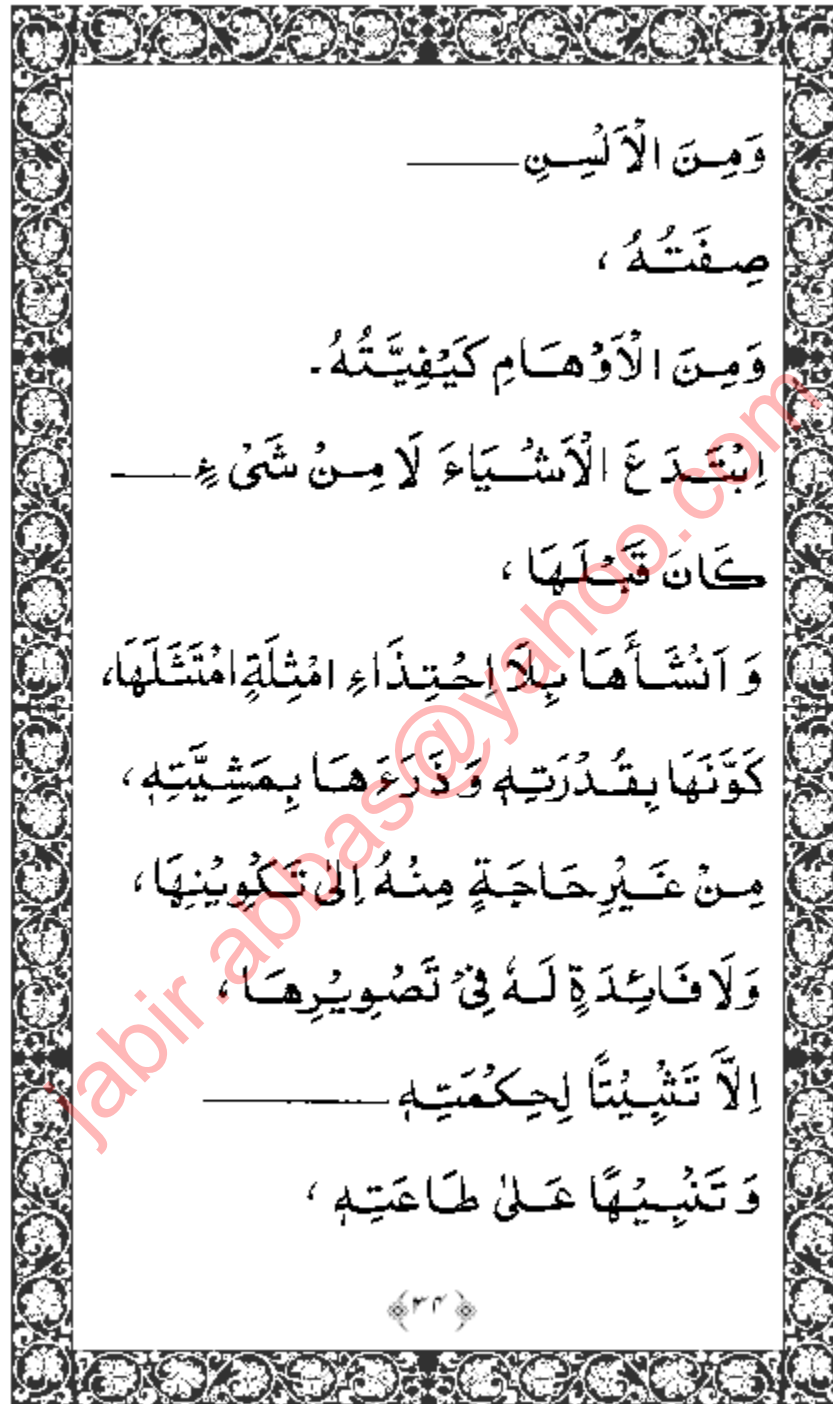 وَمِنَ الْاَلْسِنِ ـــــــ
صِفَتُهُ ،
وَمِنَ الْاَوْهَامِ كَيْفِيَّتُهُ۔
اِبْتَدَعَ الْاَشْيَاءَ لَا مِنْ شَيْءٍ ـــــــ
كَانَ قَبْلَهَا ،
وَ اَنْشَأَهَا بِلَا اِحْتِذَاءِ امْثِلَةٍ امْتَثَلَهَا،
كَوَّنَهَا بِقُدْرَتِهٖ وَ ذَرَءَهَا بِمَشِيَّتِهٖ ،
مِنْ غَيْرِ حَاجَةٍ مِنْهُ اِلىٰ تَكْوِيْنِهَا ،
وَلَا فَائِدَةٍ لَهٗ فِیْ تَصْوِيْرِهَا ،
اِلَّا تَثْبِيْتًا لِحِكْمَتِهٖ ـــــــ
وَ تَنْبِيْهًا عَلىٰ طَاعَتِهٖ ،
﴿۳۴﴾
jabir.abbas@yahoo.com